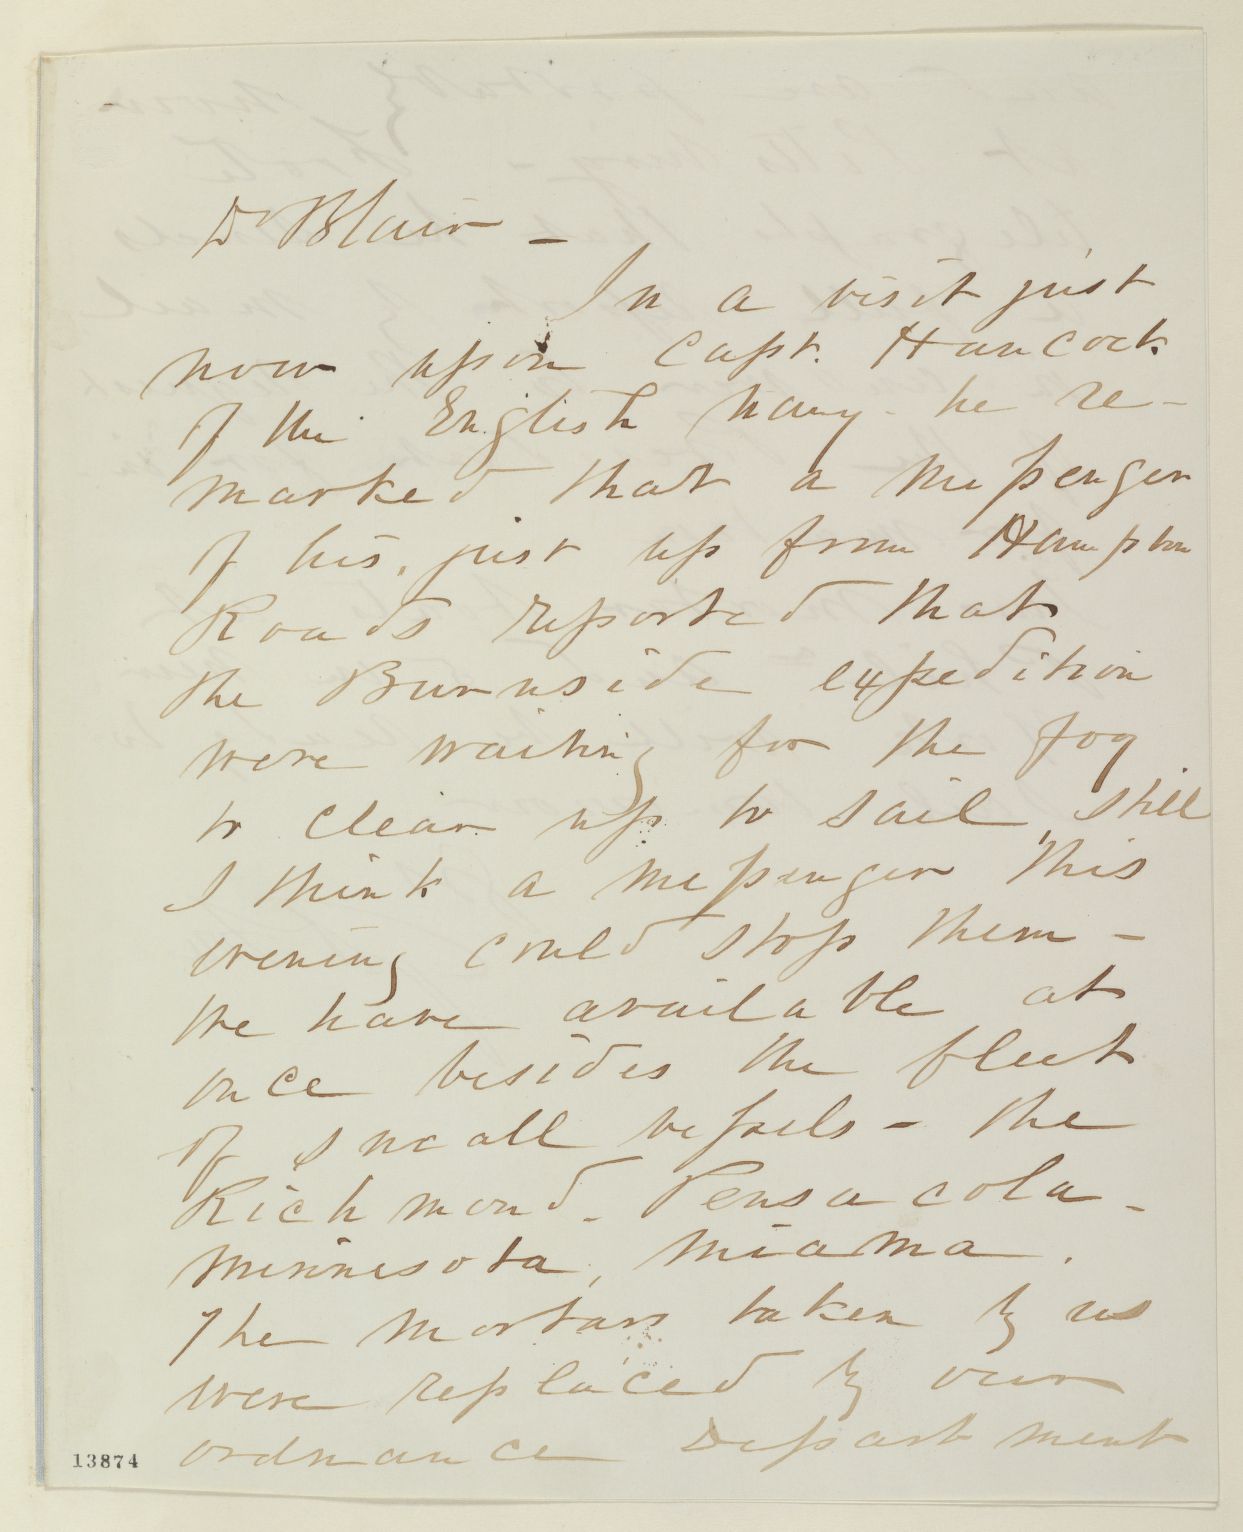 Dr Blair -
In a visit just
now upon Capt. Hancock
of the English navy - he re-
marked that a messenger
of his, just up from Hampton
Roads reported that
the Burnside expedition
were waiting for the fog
to clear up to sail, still
I think a messenger this
evening could stop them -
We have available at
once besides the fleet
of small vessels - the
Richmond - Pensacola -
Minnesota, Miama.
The mortars taken by us
were replaced by our
ordnance Department
13874